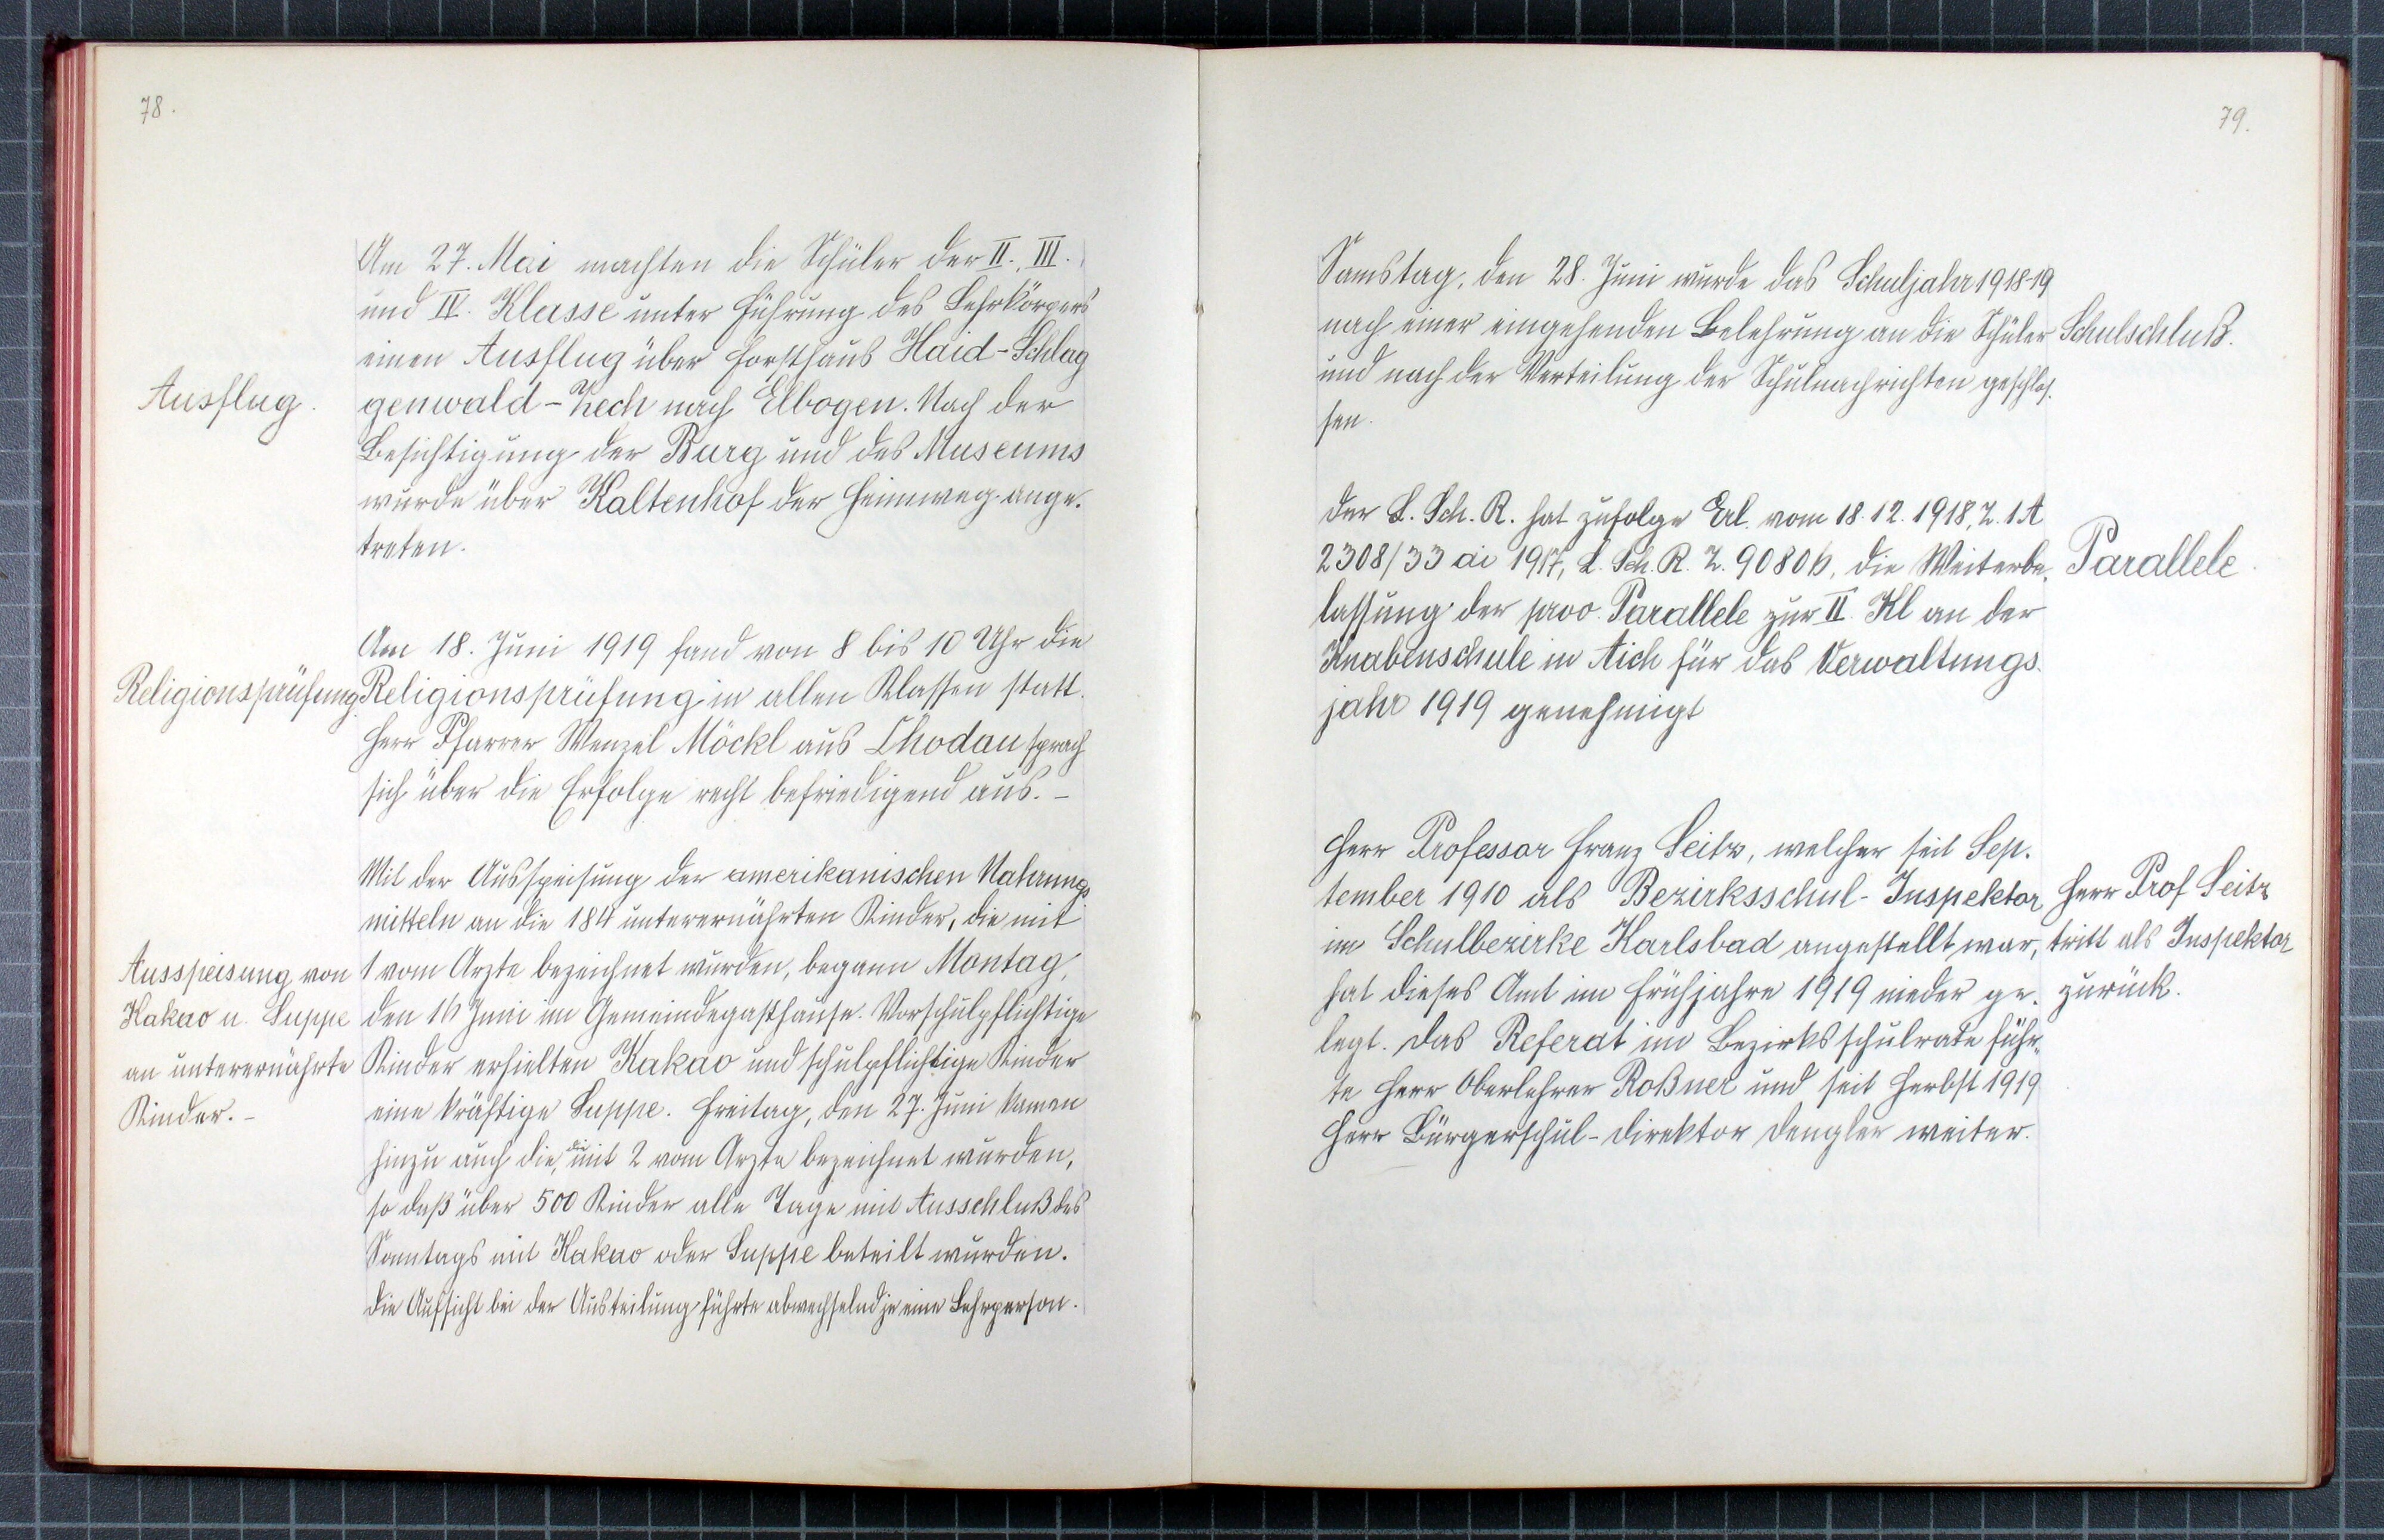 78.
Am 27. Mai machten die Schüler der II., III.
und IV. Klasse unter Führung des Lehrkörpers
einen Ausflug über Forsthaus Haid-Schlag
Ausflug.
genwald-Zech nach Elbogen. Nach der
Besichtigung der Burg und des Museums
wurde über Kaltenhof der Heimweg ange-
treten.
Am 18. Juni 1919 fand von 8 bis 10 Uhr die
Religionsprüfung.
Religionsprüfung in allen Klassen statt.
Herr Pfarrer Wenzel Möckl aus Chodau sprach
sich über die Erfolge recht befriedigend aus. –
Mit der Ausspeisung der amerikanischen Nahrungs
mitteln an die 184 unterernährten Kinder, die mit
Ausspeisung von
Kakao u. Suppe
an unterernährte
Kinder. –
1 vom Arzte bezeichnet wurden, begann Montag,
den 16 Juni im Gemeindegasthause. Vorschulpflichtige
Kinder erhielten Kakao und schulpflichtige Kinder
eine kräftige Suppe. Freitag, den 27. Juni kamen
hinzu auch die, die mit 2 vom Arzte bezeichnet wurden,
so daß über 500 Kinder alle Tage mit Ausschluß des
Sonntags mit Kakao oder Suppe beteilt wurden.
Die Aufsicht bei der Austeilung führte abwechselnd je eine Lehrperson.
79.
Samstag, den 28. Juni wurde das Schuljahr 1918-19
nach einer eingehenden Belehrung an die Schüler
Schulschluß.
und nach der Verteilung der Schulnachrichten geschlos-
sen.
Der L. Sch. R. hat zufolge Erl. vom 18.12.1918, Z. 1 A
2308/33 ai 1917, L. Sch. R. Z. 90806, die Weiterbe-
Parallele.
lassung der prov. Parallele zur II. Kl an der
Knabenschule in Aich für das Verwaltungs-
jahr 1919 genehmigt
Herr Professor Franz Seitz, welcher seit Sep-
tember 1910 als Bezirksschul-Inspektor
im Schulbezirke Karlsbad angestellt war,
hat dieses Amt im Frühjahre 1919 nieder ge-
Herr Prof Seitz
tritt als Inspektor
zurück.
legt. Das Referat im Bezirksschulrate führ-
te Herr Oberlehrer Roßner und seit Herbst 1919
Herr Bürgerschul-Direktor Dengler weiter.